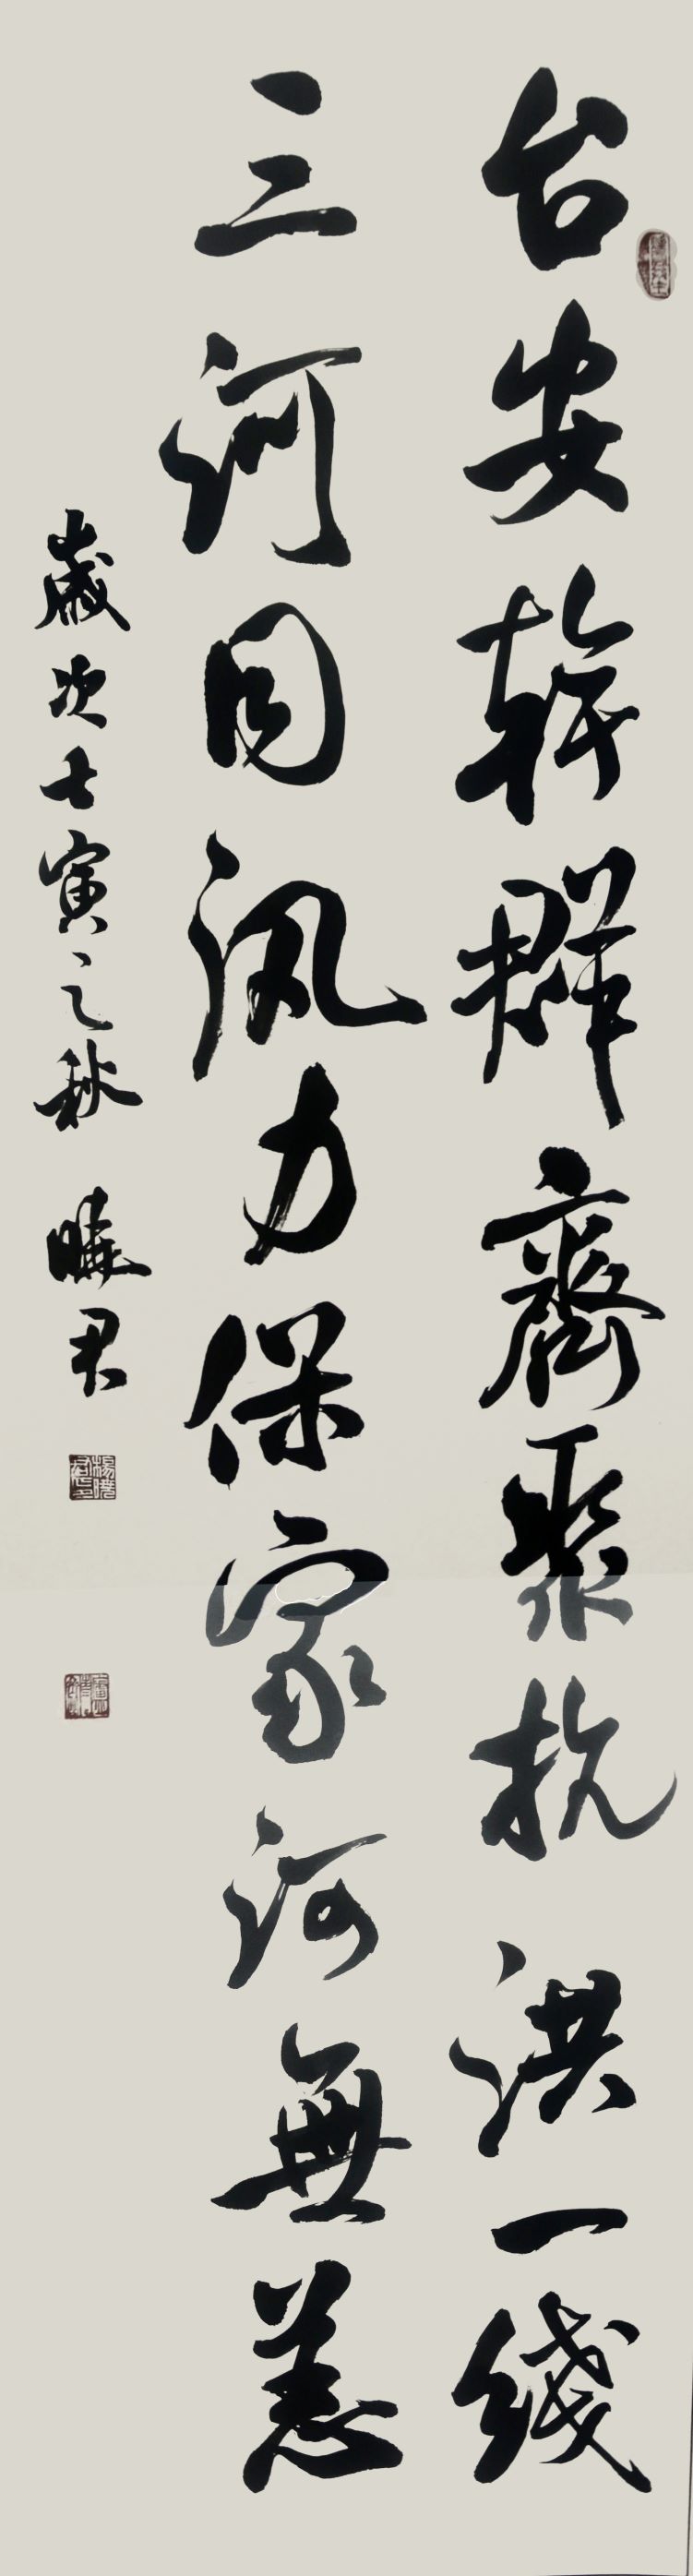 台安幹群齊聚抗洪一綫
三河同汛力保家河無恙
歲次壬寅之秋 曉君
楊曉君印